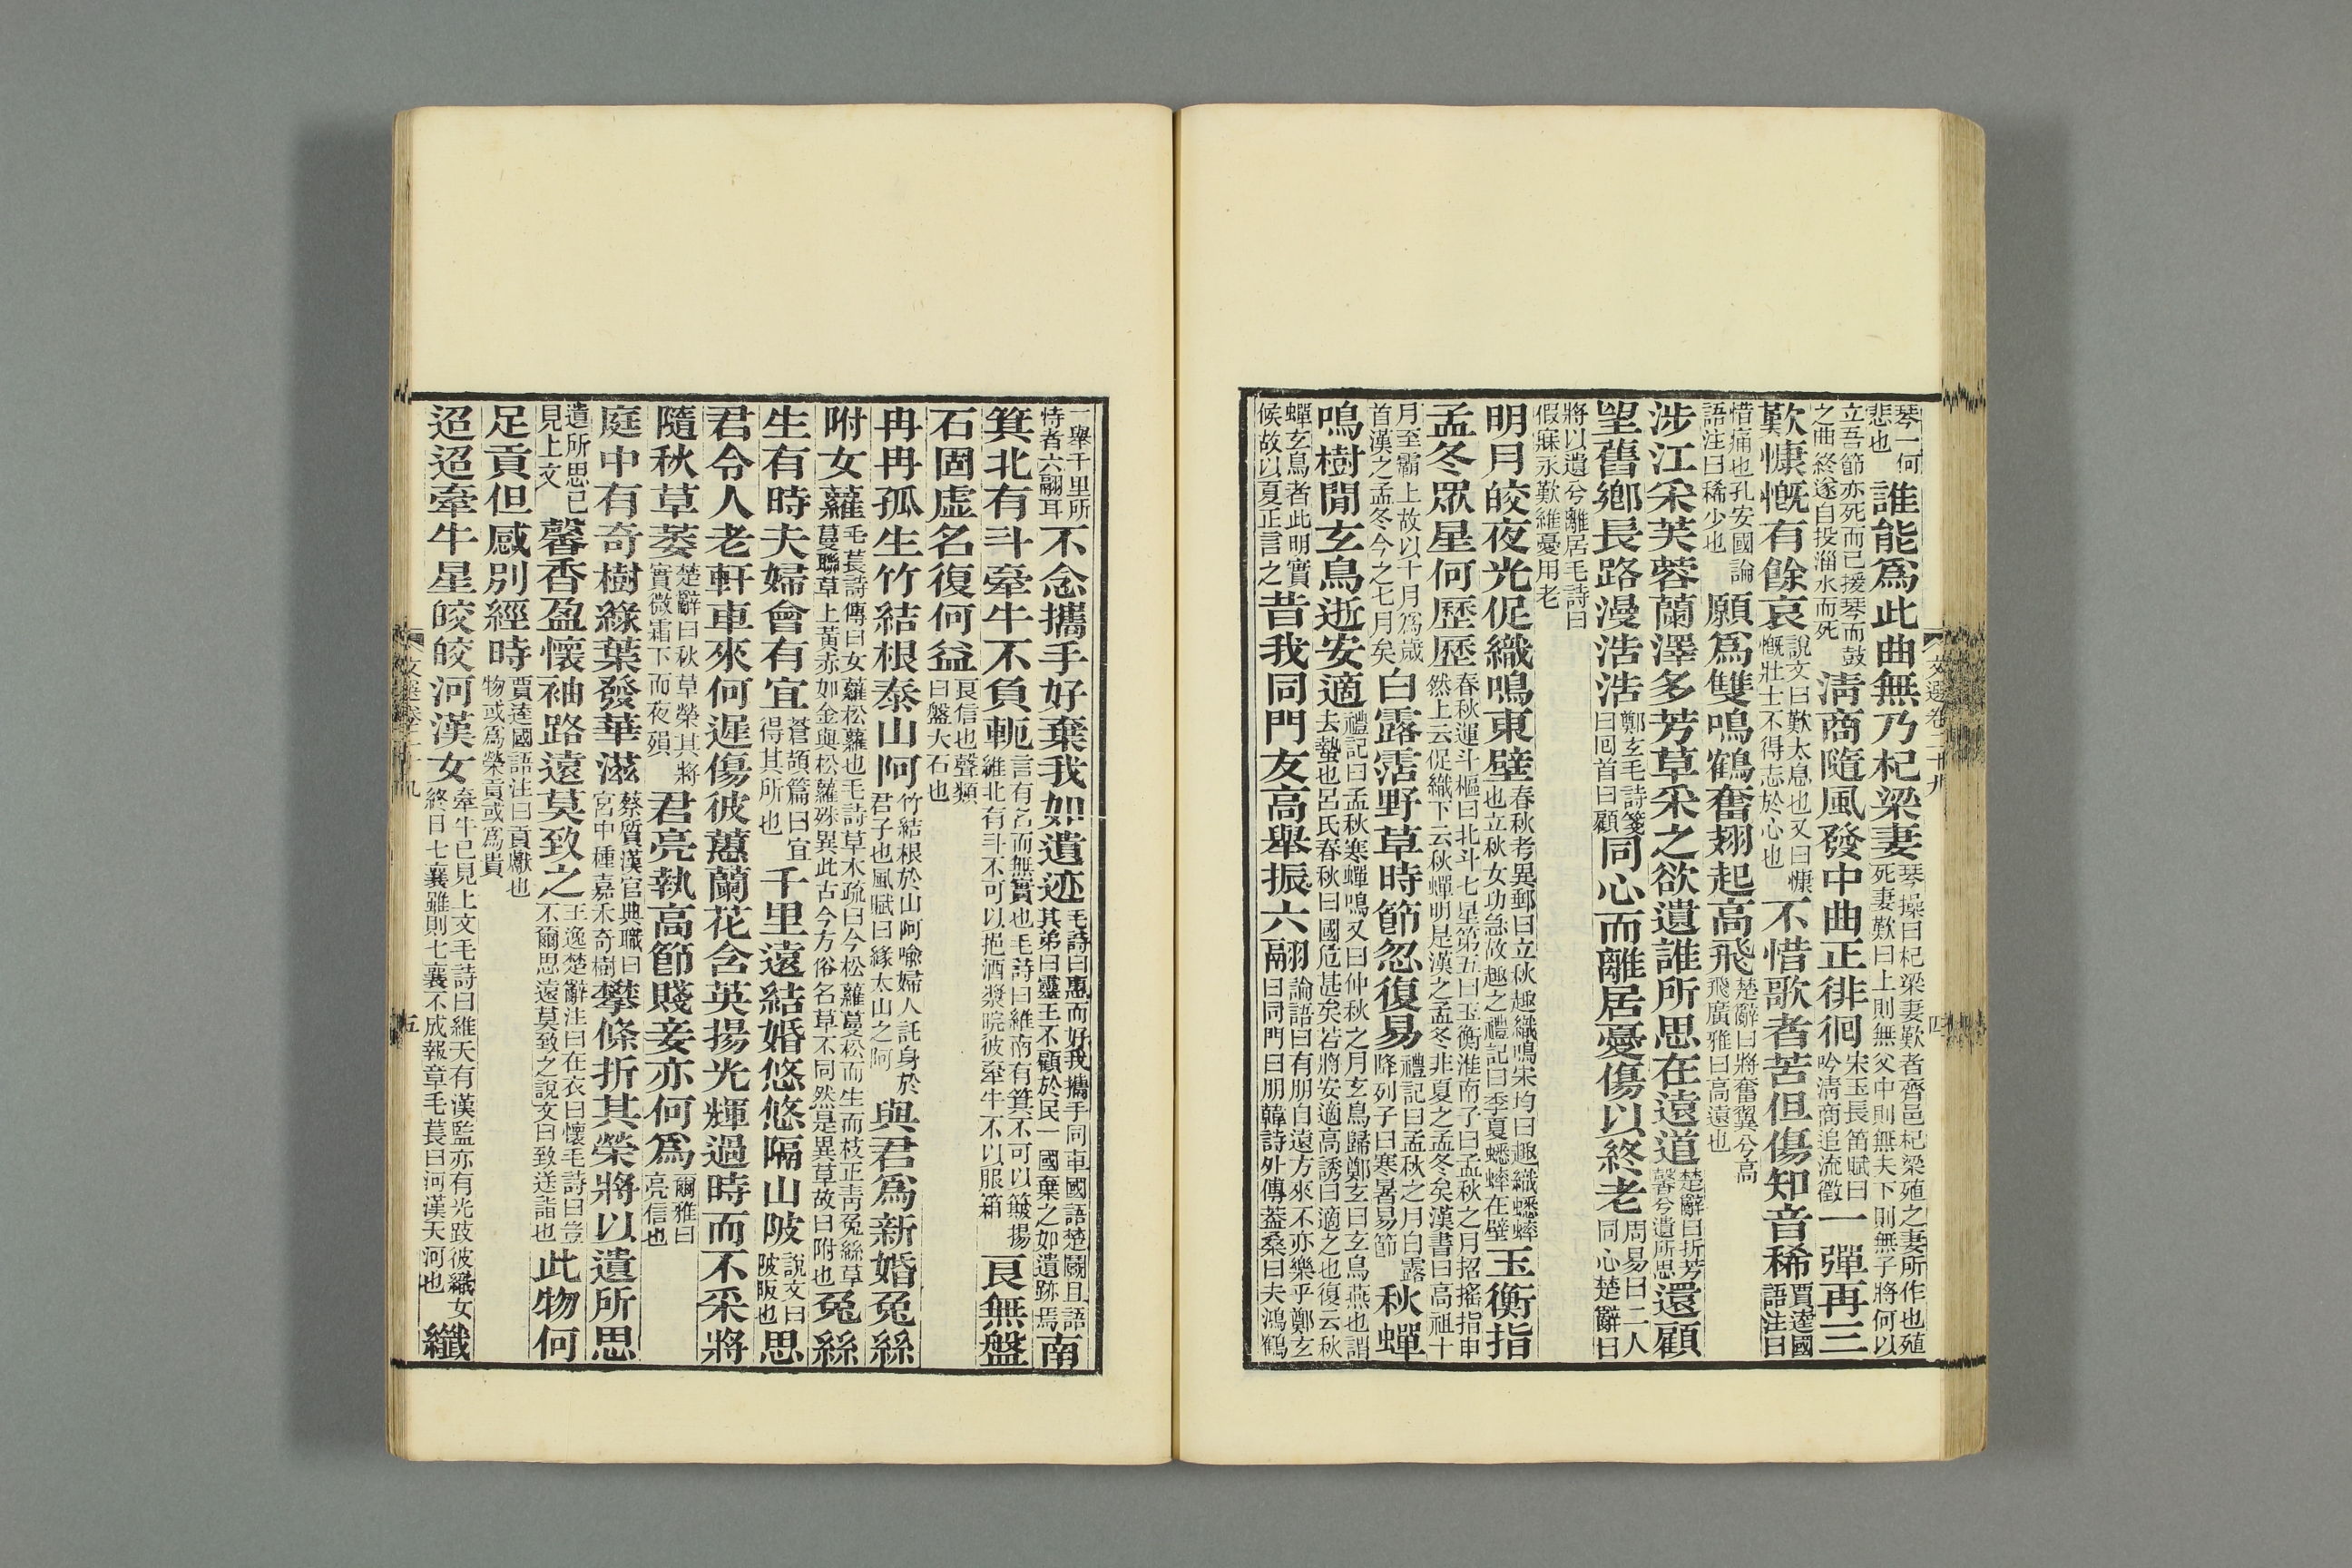 琴一何悲也誰能爲此曲無乃杞梁妻琴操曰杞梁妻歎者齊邑杞梁殖之妻所作也殖死妻歎曰上則無父中則無夫下則無子將何以
立吾節亦死而已援琴而鼓之曲終遂自投淄水而死清商隨風發中曲正徘徊宋玉長笛賦曰吟清商追流徵一彈再三
歎慷慨有餘哀說文曰歎太息也又曰慷慨壯士不得志於心也不惜歌者苦但傷知音稀賈逵國語注曰
惜痛也孔安國論語注曰稀少也願爲雙鳴鶴奮翅起高飛楚辭曰將奮翼兮高飛廣雅曰高遠也
涉江采芙蓉蘭澤多芳草采之欲遺誰所思在遠道楚辭曰折芳馨兮遺所思還顧
望舊鄉長路漫浩浩鄭玄毛詩箋曰回首曰顧同心而離居憂傷以終老周易曰二人同心楚辭曰
將以遺兮離居毛詩曰假寐永歎維憂用老
明月皎夜光促織鳴東壁春秋考異郵曰立秋趣織鳴宋均曰趣織蟋蟀也立秋女功急故趣之禮記曰季夏蟋蟀在壁玉衡指
孟冬眾星何歷歷春秋運斗樞曰北斗七星第五曰玉衡淮南子曰孟秋之月招搖指申然上云促織下云秋蟬明是漢之孟冬非夏之孟冬矣漢書曰高祖十
月至霸上故以十月爲歲首漢之孟冬今之七月矣白露霑野草時節忽復易禮記曰孟秋之月白露降列子曰寒暑易節秋蟬
鳴樹閒玄鳥逝安適禮記曰孟秋寒蟬鳴又曰仲秋之月玄鳥歸鄭玄曰玄鳥燕也謂去蟄也呂氏春秋曰國危甚矣若將安適高誘曰適之也復云秋
蟬玄鳥者此明實候故以夏正言之昔我同門友高舉振六翮論語曰有朋自遠方來不亦樂乎鄭玄曰同門曰朋韓詩外傳蓋桑曰夫鴻鵠
文選卷二十九
四
一舉千里所恃者六翮耳不念攜手好棄我如遺迹毛詩曰惠而好我攜手同車國語楚鬬且語其弟曰靈王不顧於民一國棄之如遺跡焉南
箕北有斗牽牛不負軛言有名而無實也毛詩曰維南有箕不可以簸揚維北有斗不可以挹酒漿睆彼牽牛不以服箱良無盤
石固虛名復何益良信也聲類曰盤大石也
冉冉孤生竹結根泰山阿竹結根於山阿喻婦人託身於君子也風賦曰緣太山之阿與君爲新婚兔絲
附女蘿毛萇詩傳曰女蘿松蘿也毛詩草木疏曰今松蘿蔓松而生而枝正青兔絲草蔓聯草上黃赤如金與松蘿殊異此古今方俗名草不同然是異草故曰附也兔絲
生有時夫婦會有宜蒼頡篇曰宜得其所也千里遠結婚悠悠隔山陂說文曰陂阪也思
君令人老軒車來何遲傷彼蕙蘭花含英揚光輝過時而不采將
隨秋草萎楚辭曰秋草榮其將實微霜下而夜殞君亮執高節賤妾亦何爲爾雅曰亮信也
庭中有奇樹綠葉發華滋蔡質漢官典職曰宮中種嘉禾奇樹攀條折其榮將以遺所思
遺所思已見上文馨香盈懷袖路遠莫致之王逸楚辭注曰在衣曰懷毛詩曰豈不爾思遠莫致之說文曰致送詣也此物何
足貢但感別經時賈逵國語注曰貢獻也物或爲榮貢或爲貴
迢迢牽牛星皎皎河漢女牽牛已見上文毛詩曰維天有漢監亦有光跂彼織女終日七襄雖則七襄不成報章毛萇曰河漢天河也纖
文選卷二十九
五